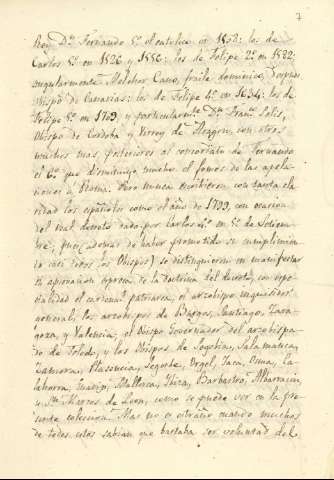 7
Rey Dⁿ Fernando 5º el catolico en 1508: los de
Carlos 5º en 1526 y 1556: los de Felipe 2º en 1582:
singularmente Melchor Cano, fraile dominico, despues
obispo de Canarias: los de Felipe 4º en 1634: los de
Felipe 5º en 1709 y particularmte Dⁿ Franco Solis,
Obispo de Cordoba y Virrey de Aragon, con otros
muchos mas posteriores al concordato de Fernando
el 6º que disminuyó mucho el fomes de las apela-
ciones á Roma. Pero nunca escribieron con tanta cla-
ridad los españoles como el año de 1799, con ocasion
del real decreto dado por Carlos 4º en 5 de Setiem-
bre, pues ademas de haber prometido su cumplimien-
to casi todos los Obispos, se distinguieron en manifestar
su aprobacion expresa de la doctrina del decreto, con espe-
cialidad el cardenal patriarca, el arzobispo inquisidor
general, los arzobispos de Burgos, Santiago, Zara-
goza, y Valencia; el Obispo Governador del arzobispa-
do de Toledo, y los Obispos de Segobia, Salamanca,
Zamora, Plasencia, Segorbe, Urgel, Jaca, Osma, Ca-
lahorra, Guadix, Mallorca, Ibiza, Barbastro, Albarracin
y Sn Marcos de Leon, como se puede ver en la pre-
sente coleccion. Mas no es estraño cuando muchos
de todos estos sabian que bastaba ser voluntad del